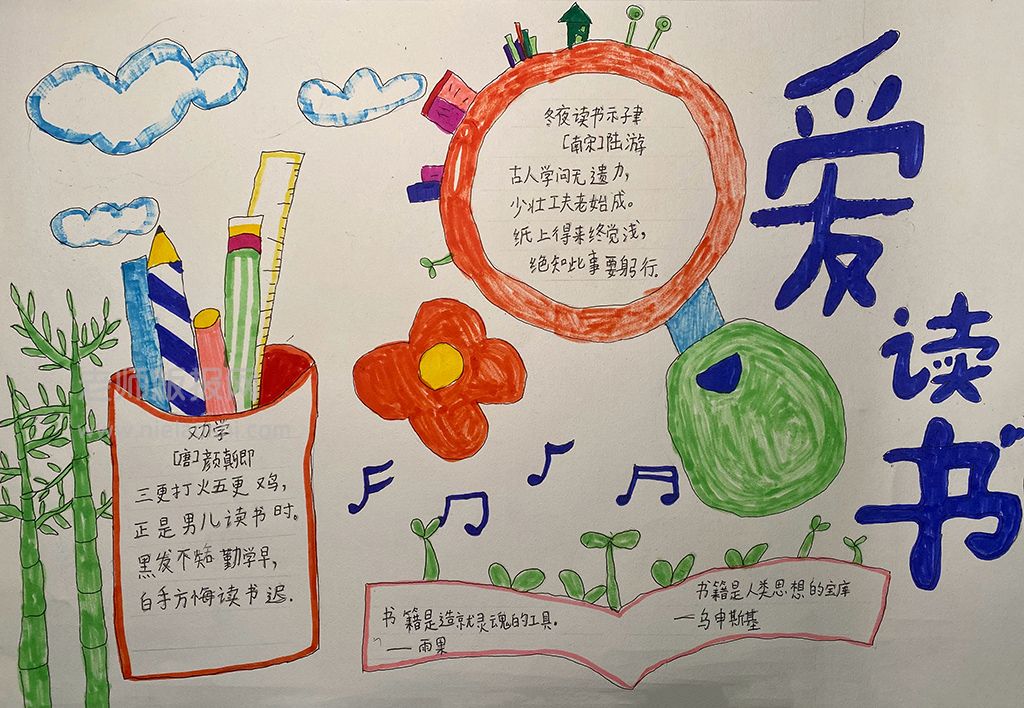 爱读书
冬夜读书示子聿
[南宋]陆游
古人学问无遗力，
少壮工夫老始成。
纸上得来终觉浅，
绝知此事要躬行.
劝学
[唐]颜真卿
三更灯火五更鸡，
正是男儿读书时。
黑发不知勤学早，
白手方悔读书迟.
书籍是造就灵魂的工具.
——雨果
书籍是人类思想的宝库
—乌申斯基